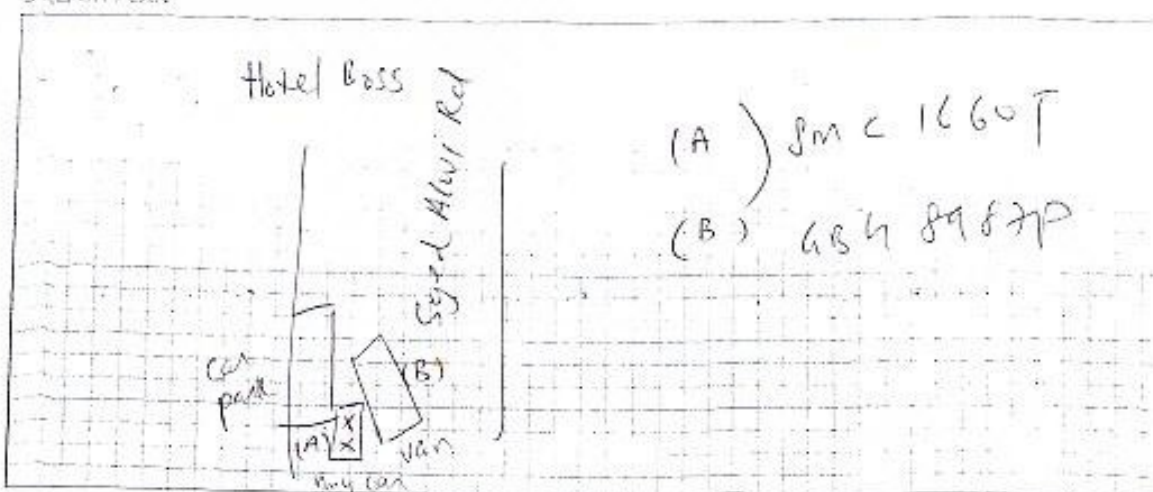 Hotel Boss
Syed Alwi Rd
(A) SMC 1660T
(B) GBH 8987P
Car
park
(A)
X
X
(B)
van
my car